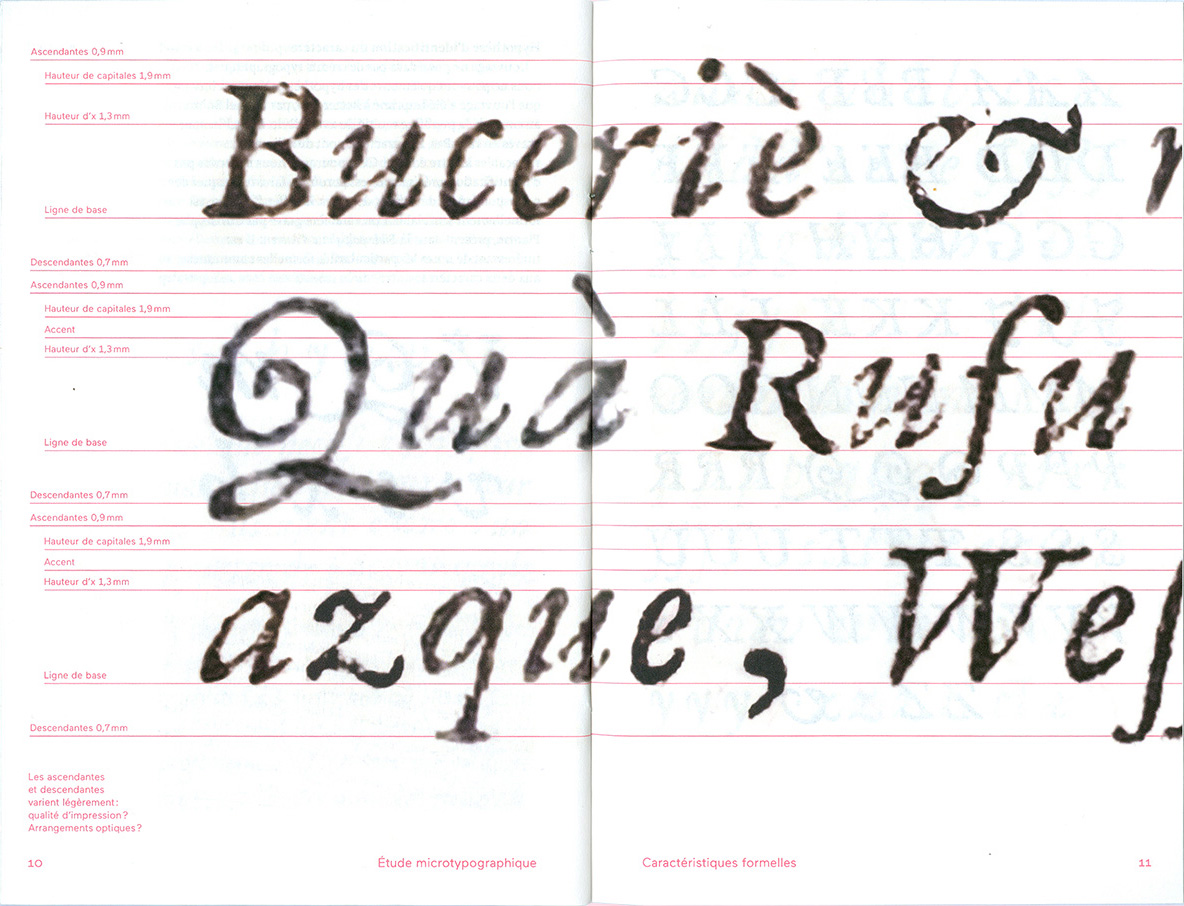 Ascendantes 0,9 mm
Hauteur de capitales 1,9 mm
Hauteur d'x 1,3 mm
Buceriè &
Ligne de base
Descendantes 0,7 mm
Ascendantes 0,9 mm
Hauteur de capitales 1,9 mm
Accent
Hauteur d'x 1,3 mm
Quà Rufu
Ligne de base
Descendantes 0,7 mm
Ascendantes 0,9 mm
Hauteur de capitales 1,9 mm
Accent
Hauteur d'x 1,3 mm
azque, Weſ
Ligne de base
Descendantes 0,7 mm
Les ascendantes
et descendantes
varient légèrement :
qualité d'impression ?
Arrangements optiques ?
10 Étude microtypographique Caractéristiques formelles 11